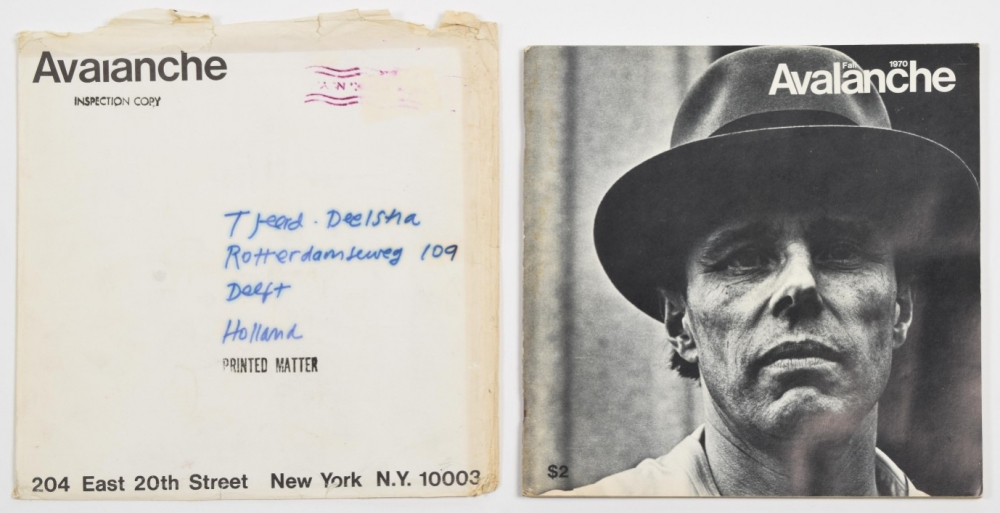 Avalanche
INSPECTION COPY
Tjeerd. Deelstra
Rotterdamseweg 109
Delft
Holland
PRINTED MATTER
204 East 20th Street New York N.Y. 10003
Fall 1970
Avalanche
$2